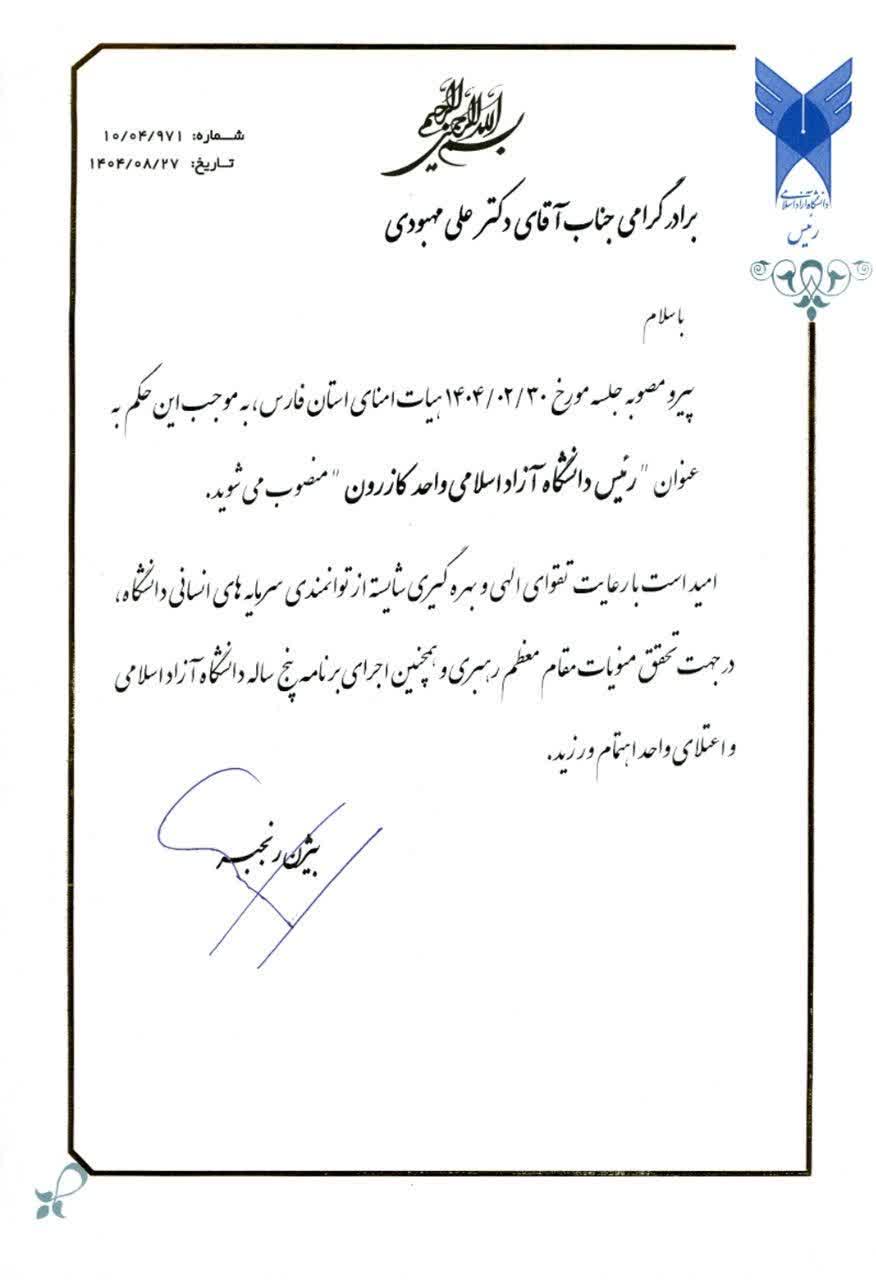 بسم الله الرحمن الرحیم
شماره: ۱۰/۰۴/۹۷۱
تاریخ: ۱۴۰۴/۰۸/۲۷
دانشگاه آزاد اسلامی
رئیس
برادر گرامی جناب آقای دکتر علی مهبودی
با سلام
پیرو مصوبه جلسه مورخ ۱۴۰۴/۰۲/۳۰ هیات امنای استان فارس، به موجب این حکم به
عنوان "رئیس دانشگاه آزاد اسلامی واحد کازرون" منصوب می شوید.
امید است با رعایت تقوای الهی و بهره گیری شایسته از توانمندی سرمایه های انسانی دانشگاه،
در جهت تحقق منویات مقام معظم رهبری و همچنین اجرای برنامه پنج ساله دانشگاه آزاد اسلامی
و اعتلای واحد اهتمام ورزید.
بیژن رنجبر